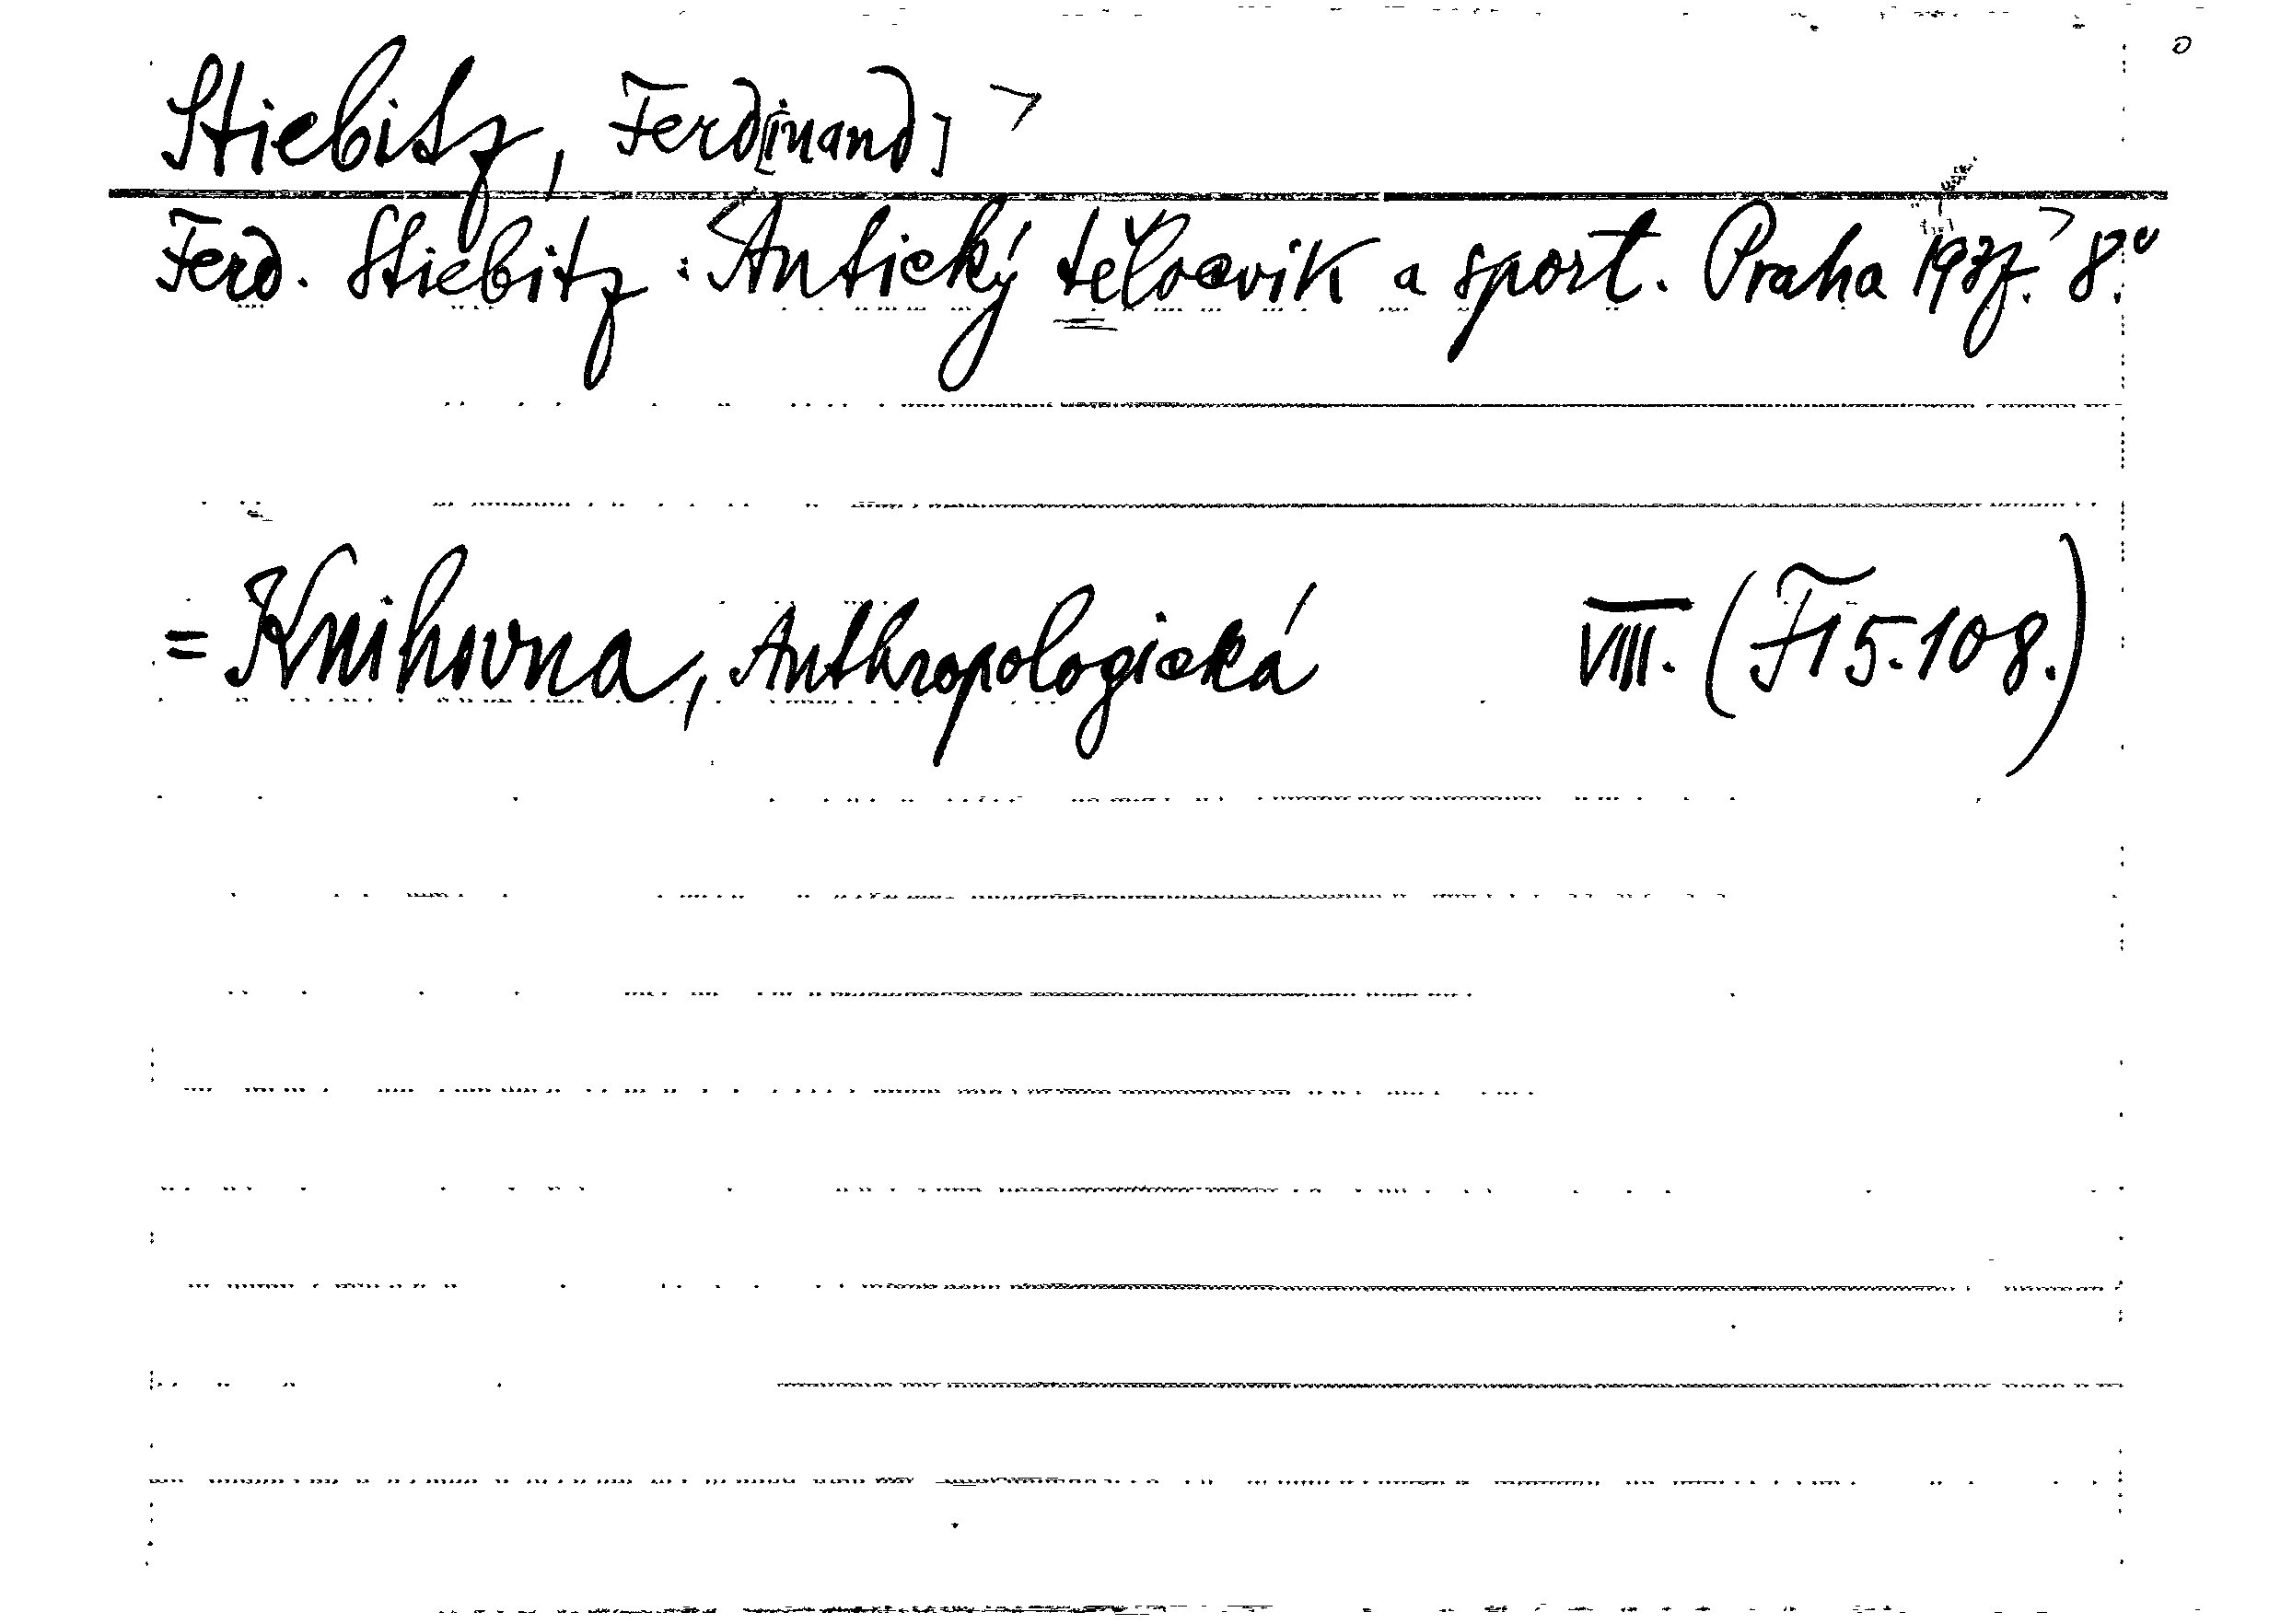 Stiebitz, Ferd[inand]
Ferd. Stiebitz: Antický tělocvik a sport. Praha 1937. 8.°
= Knihovna, Anthropologická VIII. (F15.108.)